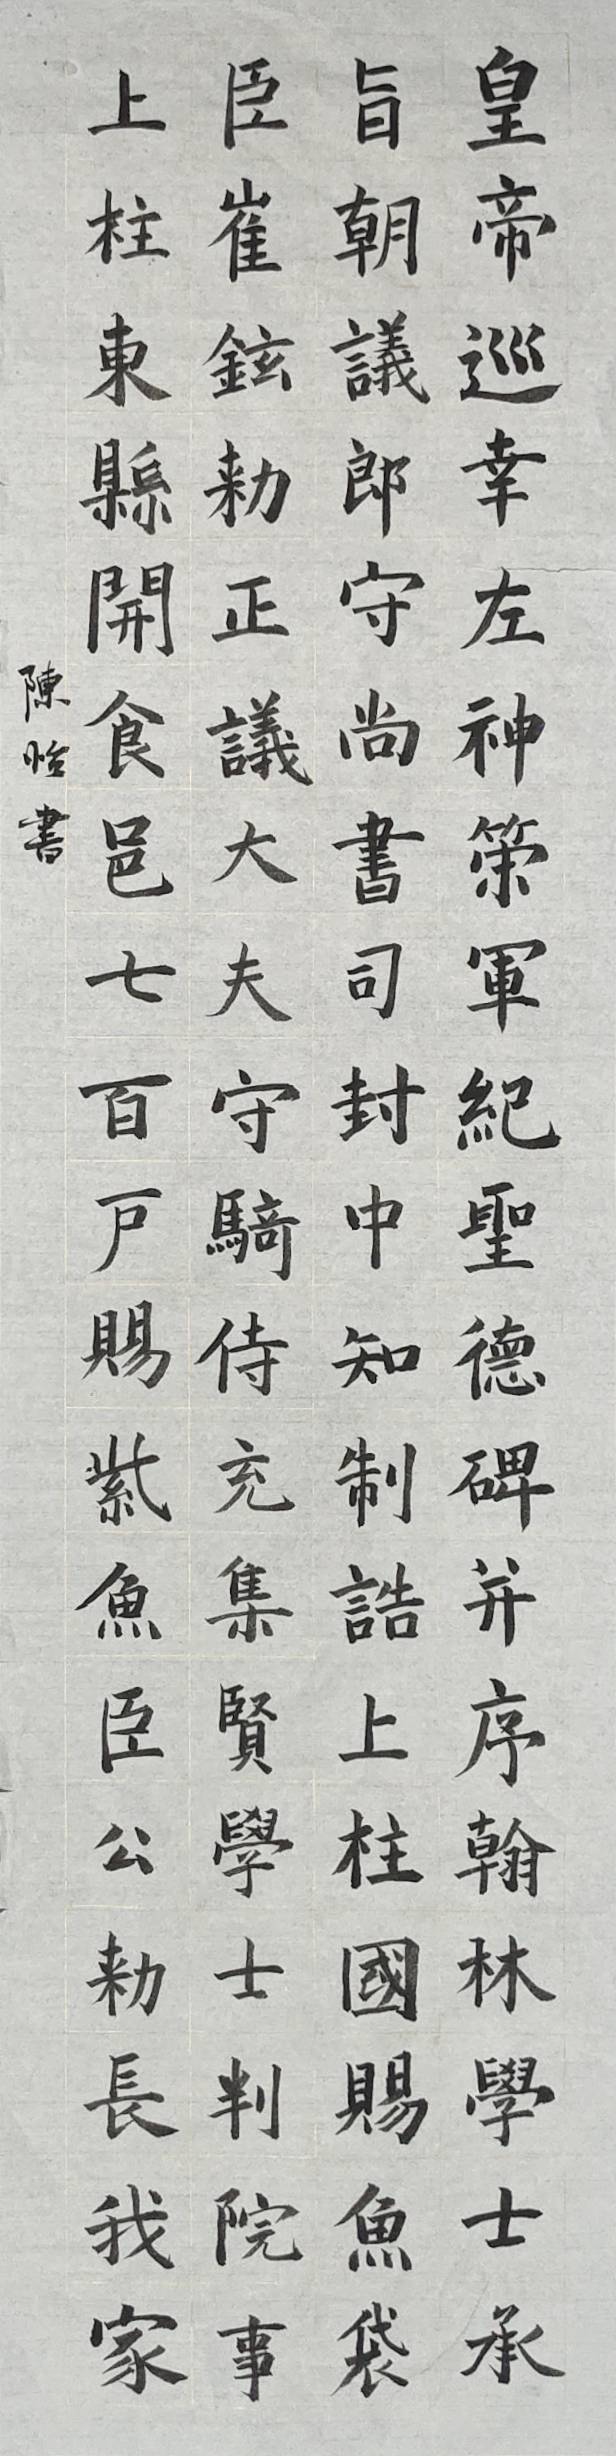 皇帝巡幸左神策軍紀聖德碑并序翰林學士承
旨朝議郎守尚書司封中知制誥上柱國賜魚袋
臣崔鉉勑正議大夫守騎侍充集賢學士判院事
上柱東縣開食邑七百戶賜紫魚臣公勑長我家
陳怡書